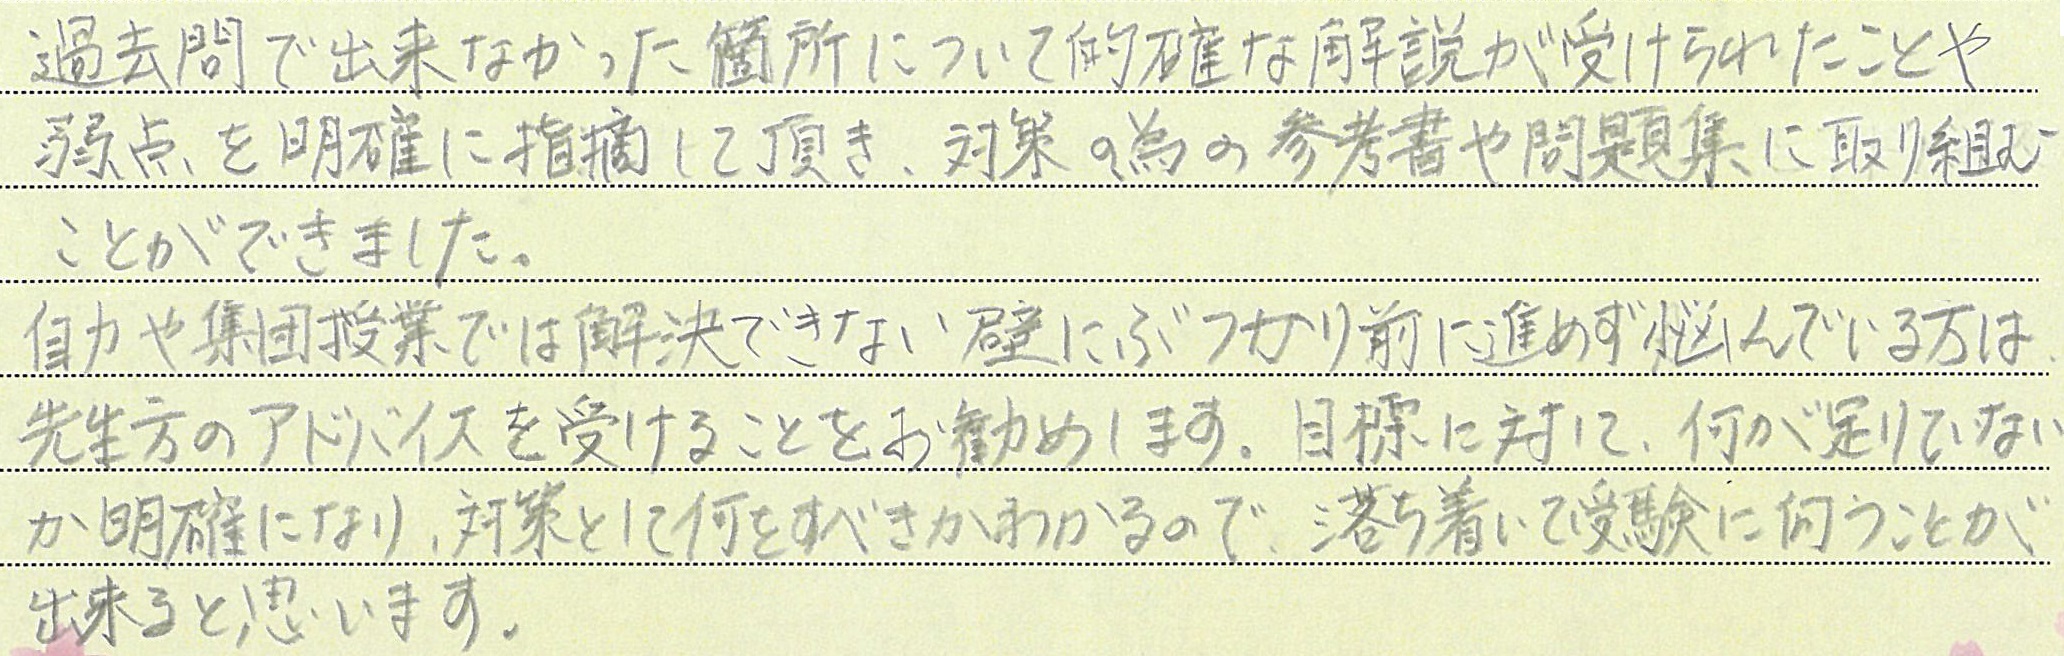 過去問で出来なかった箇所について的確な解説が受けられたことや
弱点を明確に指摘して頂き、対策の為の参考書や問題集に取り組む
ことができました。
自力や集団授業では解決できない壁にぶつかり前に進めず悩んでいる方は、
先生方のアドバイスを受けることをお勧めします。目標に対して、何が足りていない
か明確になり、対策として何をすべきかわかるので、落ち着いて受験に向うことが
出来ると思います。